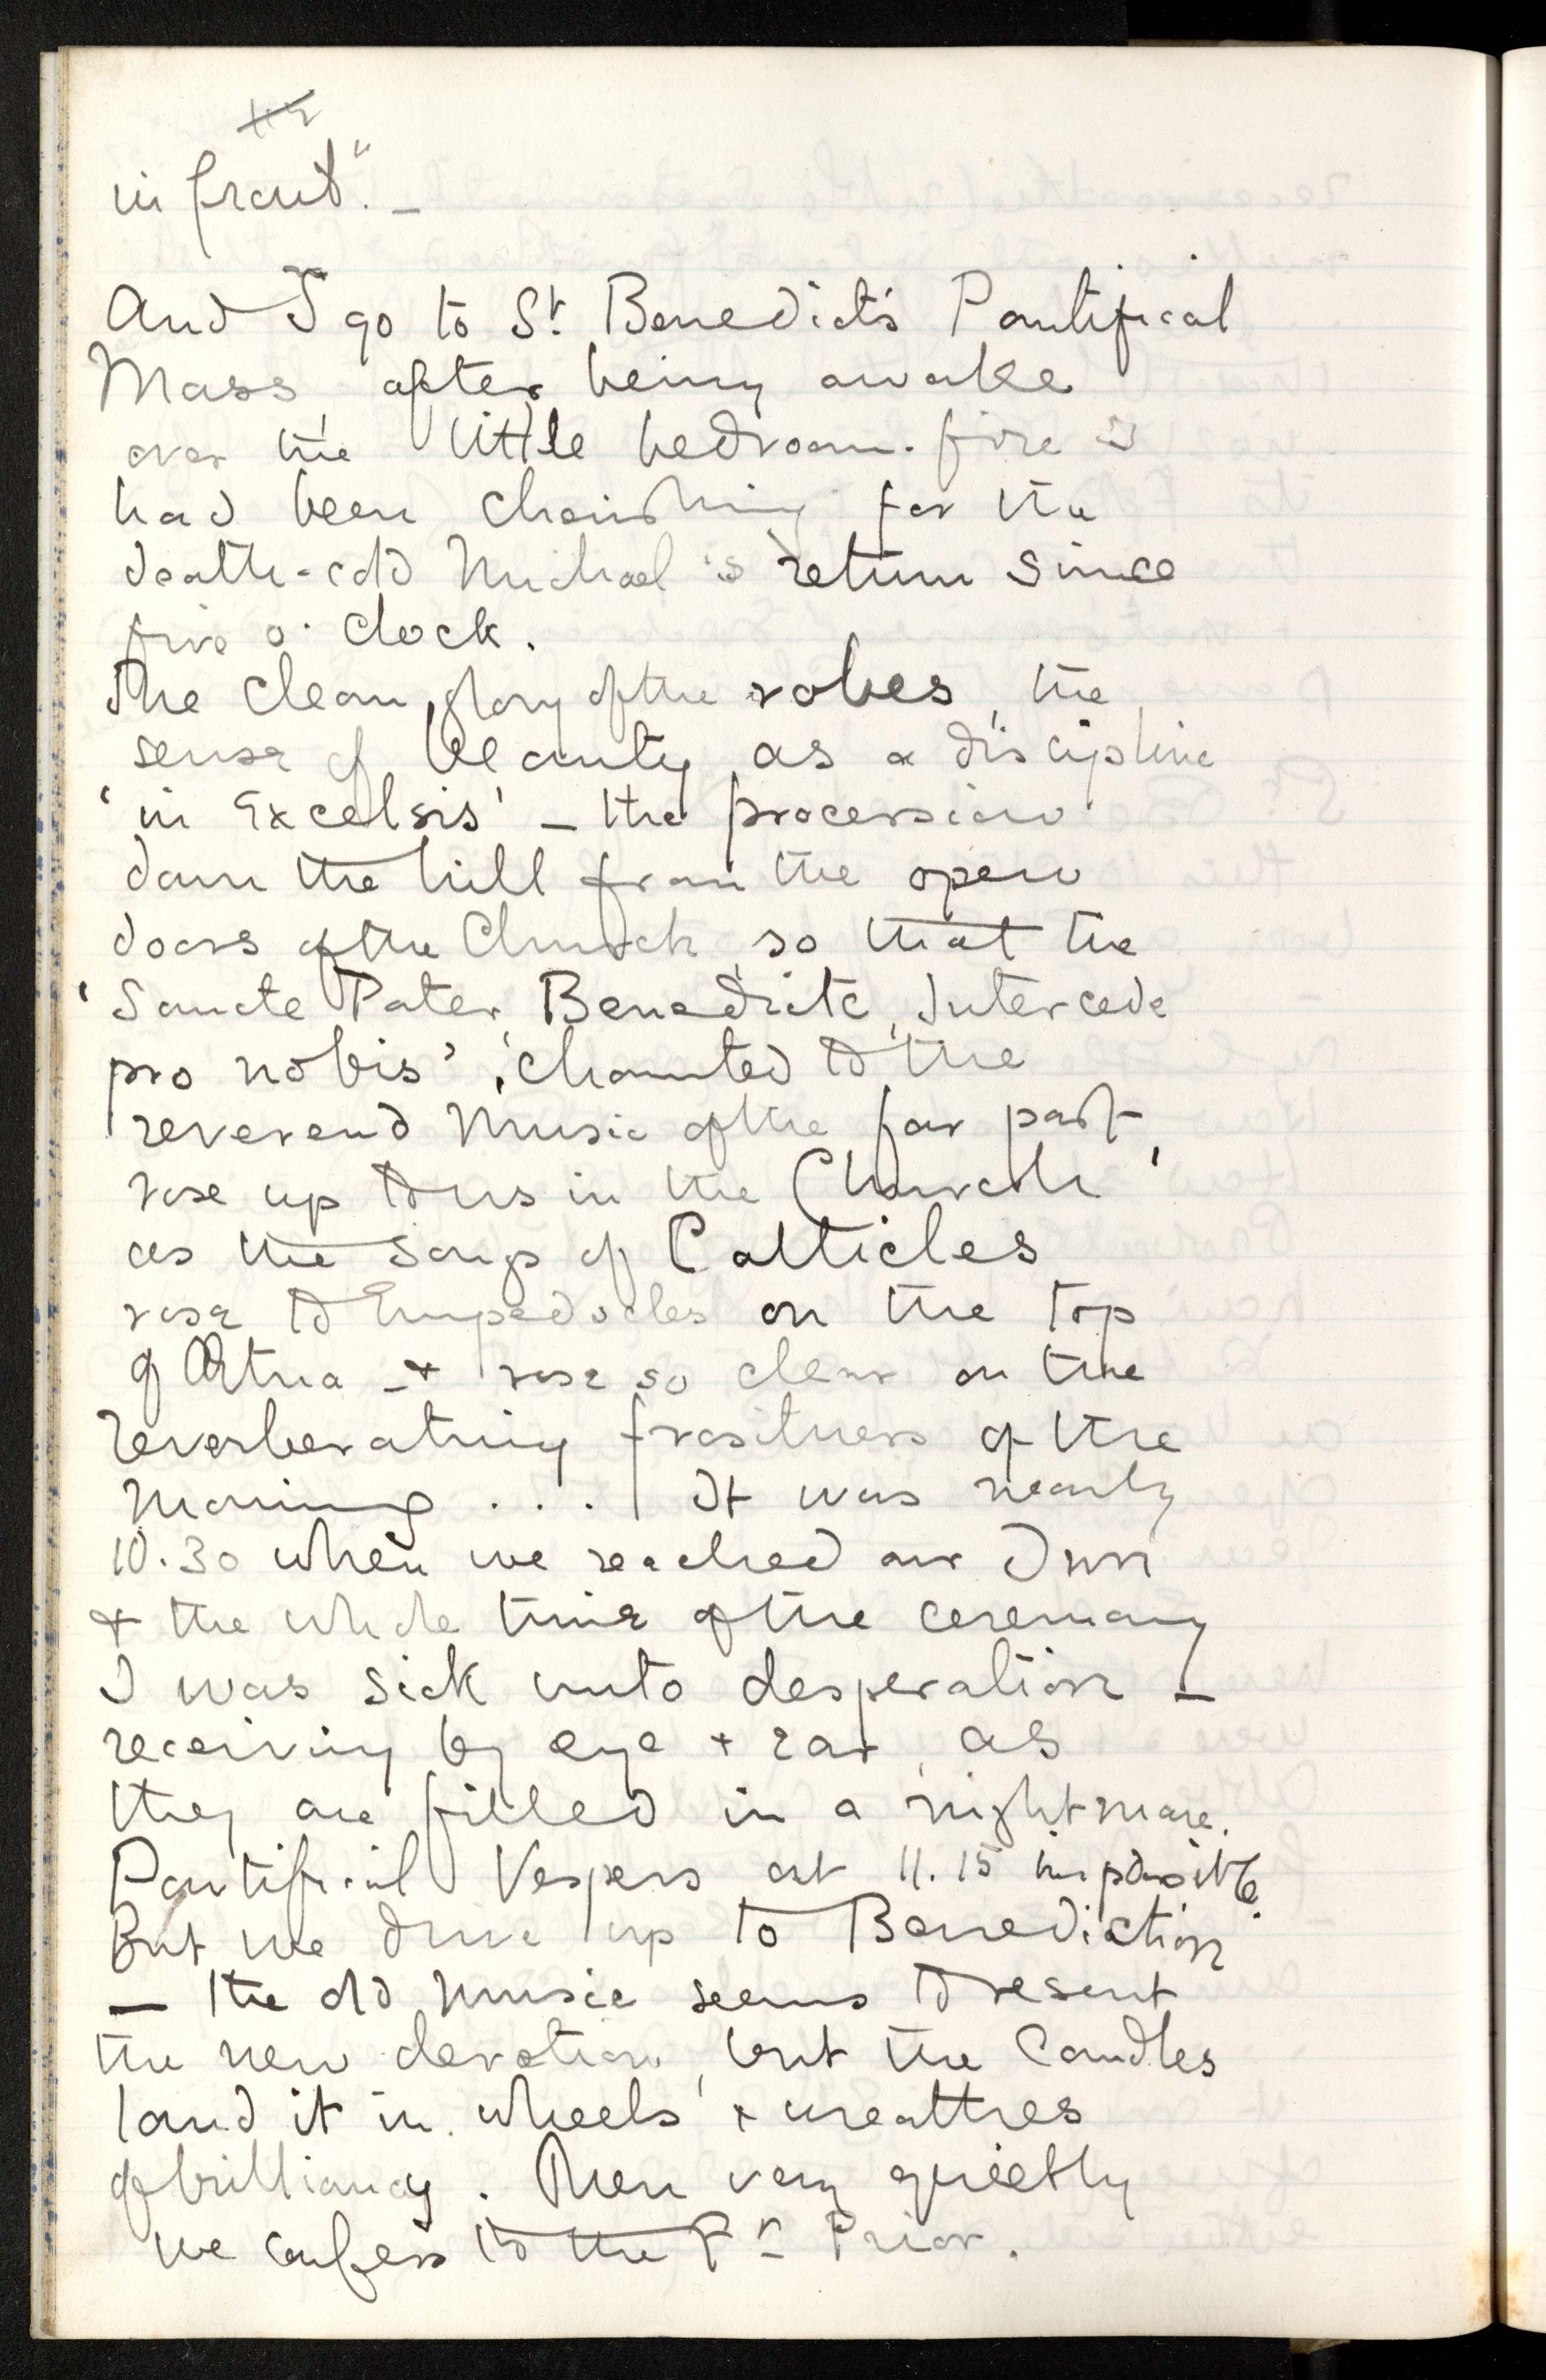 in front". –
And I go to St. Benedict's Pontifical
Mass, after being awake
over the little bedroom-fire I
had been cherishing for the
death-cold Michael's return since
five o'clock.
The clean glory of the robes, the
sense of beauty as a discipline
'in Excelsis' – the procession
down the hill from the open
doors of the Church, so that the
'Sancte Pater, Benedicte, Intercede
pro nobis', chaunted to the
reverend music of the far past,
rose up to us in the Church
as the songs of Callicles
rose to Empedocles on the top
of Ætna – & rose so clear on the
reverberating frostiness of the
morning . . . . It was nearly
10.30 when we reached our Inn
& the whole time of the ceremony
I was sick unto desperation –
receiving by eye & ear, as
they are filled in a nightmare.
Pontifical Vespers at 11.15 impossible.
But we drive up to Benediction
– the old music seems to resent
the new devotion, but the Candles
laud it in wheels & wreathes
of brilliancy. Then very quietly
we confess to the Fr Prior.